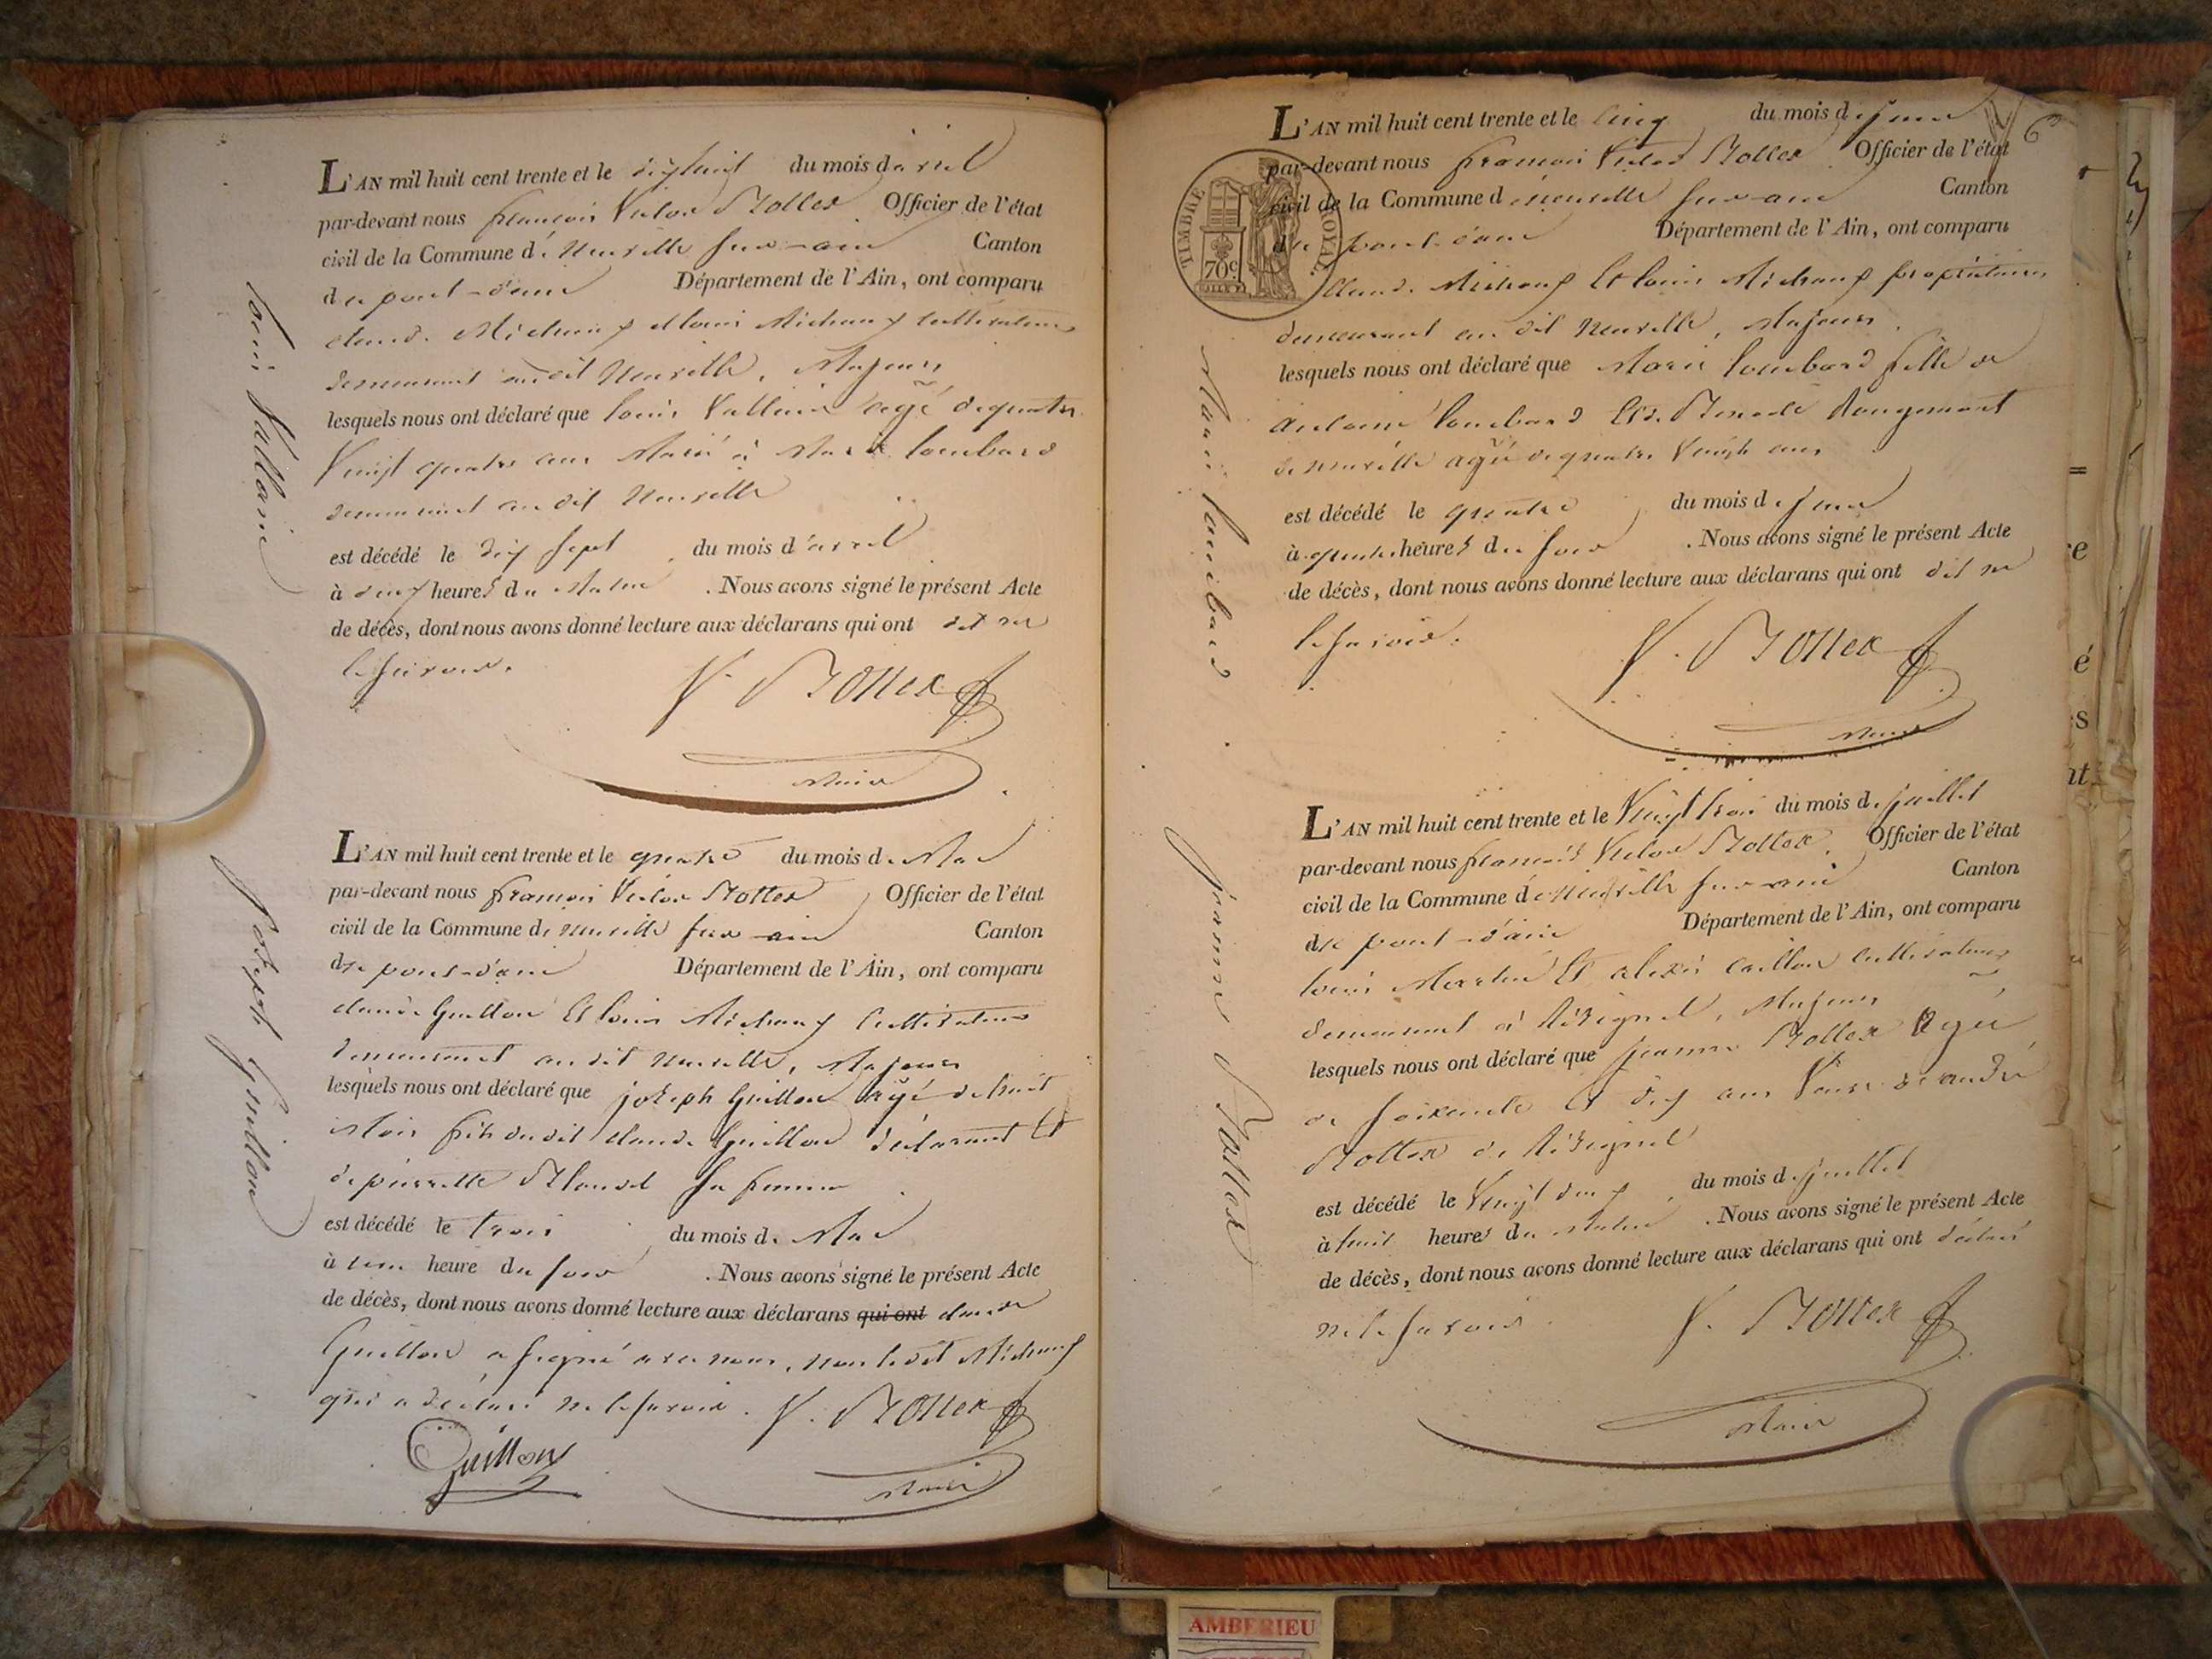 L'AN mil huit cent trente et le dixhuit du mois d'avril
par-devant nous françois Victor Bottex Officier de l'état
civil de la Commune de Neuville sur-ain Canton
de pont-d'ain Département de l'Ain, ont comparu
claude Michaux et louis Michaux cultivateurs
demeurant au dit Neuville, Majeurs
lesquels nous ont déclaré que louis Vallanié agé de quatre
Vingt quatre ans Marié à Marie lombard
demeurant au dit Neuville
est décédé le dix sept du mois d'avril
à deux heures du Matin . Nous avons signé le présent Acte
de décès, dont nous avons donné lecture aux déclarans qui ont dit ne
le savoir.
V. Bottex
Maire
louis Vallanié
L'AN mil huit cent trente et le quatre du mois de Mai
par-devant nous françois Victor Bottex Officier de l'état
civil de la Commune de Neuville sur ain Canton
de pont-d'ain Département de l'Ain, ont comparu
claude Guillon Et louis Michaux Cultivateurs
demeurant au dit Neuville, Majeurs
lesquels nous ont déclaré que joseph Guillon agé de huit
Mois fils du dit claude Guillon déclarant Et
de pierrette sa femme
est décédé le trois du mois de Mai
à une heure du soir . Nous avons signé le présent Acte
de décès, dont nous avons donné lecture aux déclarans qui ont claude
Guillon a signé avec nous, non le dit Michaux
qui a déclaré ne le savoir. V. Bottex
Guillon
Maire
joseph Guillon
6
L'AN mil huit cent trente et le cinq du mois de juin
par-devant nous françois Victor Bottex Officier de l'état
civil de la Commune de neuville sur-ain Canton
de pont-d'ain Département de l'Ain, ont comparu
TIMBRE ROYAL
70c
claude Michaux Et louis Michaux propriétaires
demeurant au dit Neuville, Majeurs.
lesquels nous ont déclaré que Marie lombard fille de
antoine lombard Et de Rougemont
de neuville agée de quatre Vingts ans
est décédé le quatre du mois de juin
à quatre heures du soir . Nous avons signé le présent Acte
de décès, dont nous avons donné lecture aux déclarans qui ont dit ne
le savoir.
V. Bottex
Maire
Marie lombard
L'AN mil huit cent trente et le Vingt trois du mois de juillet
par-devant nous françois Victor Bottex. Officier de l'état
civil de la Commune de Neuville sur-ain Canton
de pont-d'ain Département de l'Ain, ont comparu
louis Martin Et alexis caillon cultivateurs
demeurant à Résignel, Majeurs
lesquels nous ont déclaré que jeanne Bottex Agée
de soixante Et dix ans Veuve de andré
Bottex de Résignel
est décédé le Vingt deux du mois de juillet
à huit heures du Matin . Nous avons signé le présent Acte
de décès, dont nous avons donné lecture aux déclarans qui ont déclaré
ne le savoir.
V. Bottex
Maire
jeanne Bottex
AMBERIEU